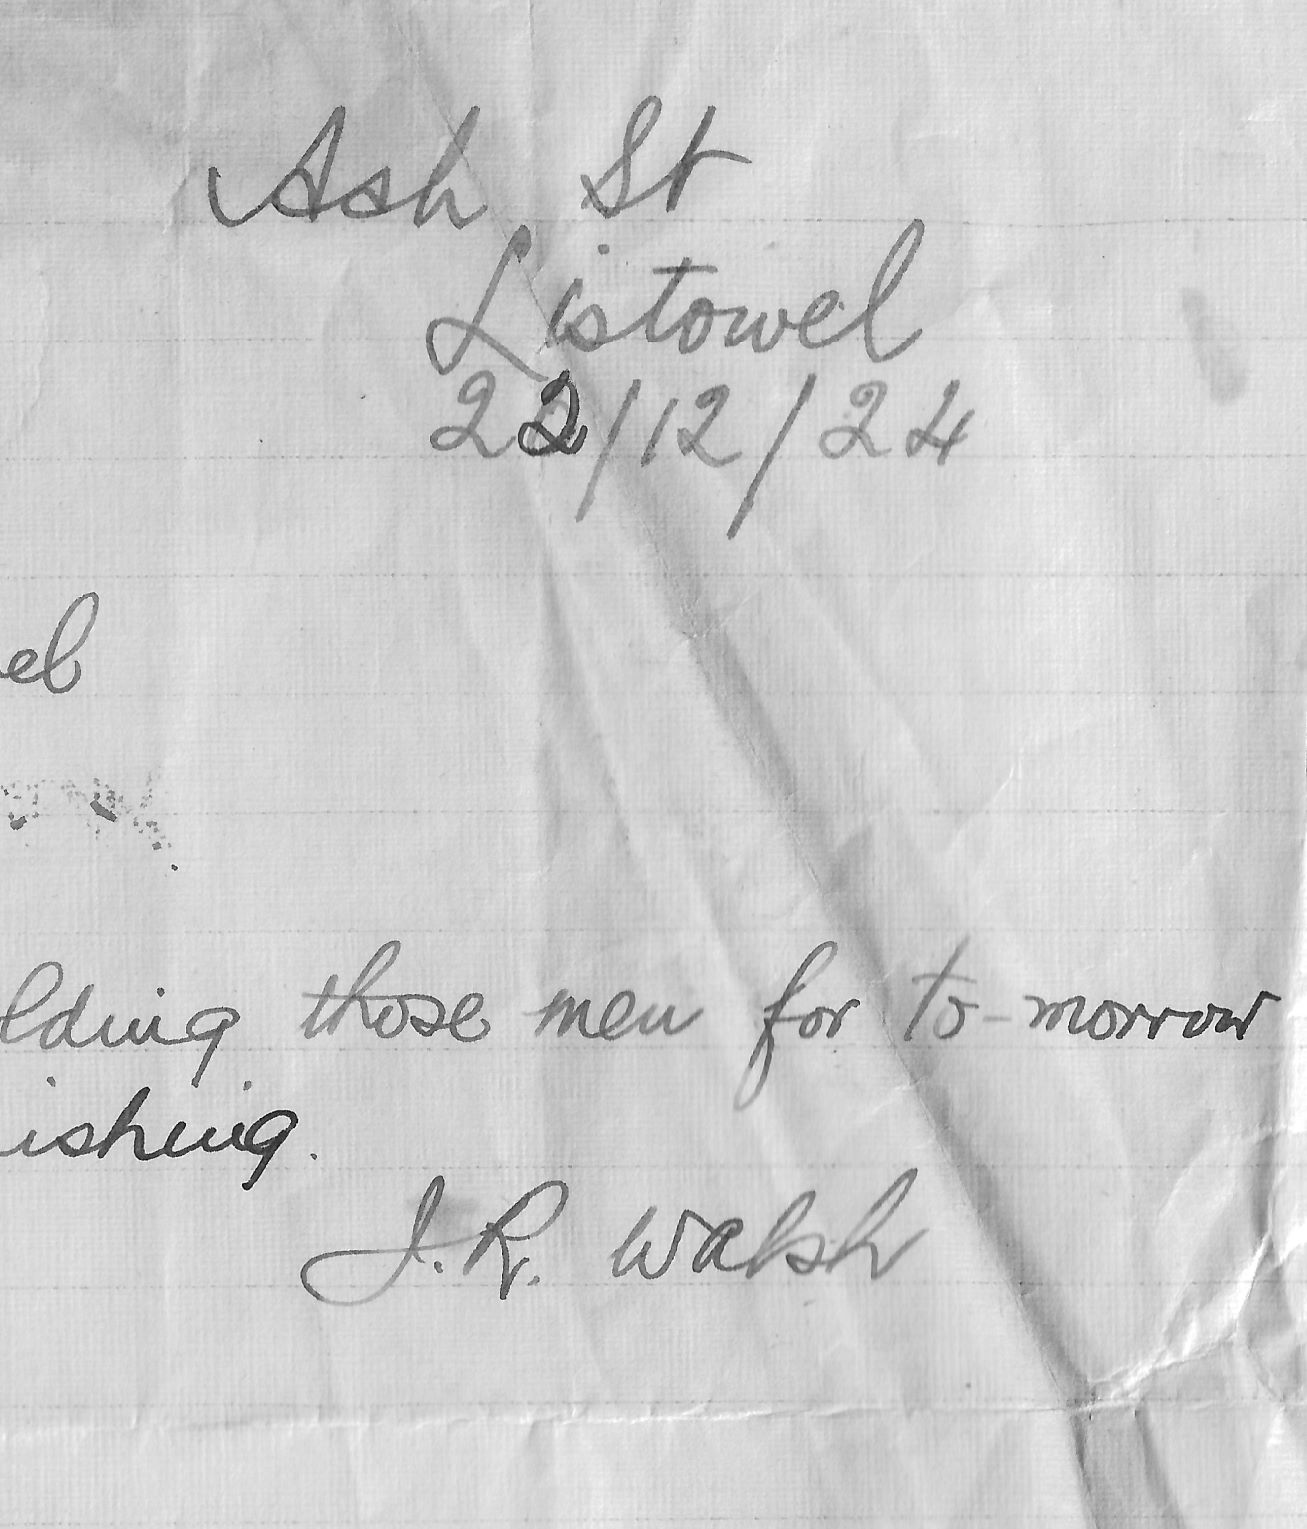 Ash St
Listowel
22/12/24
el
lding those men for to-morrow
ishing.
J. R. Walsh